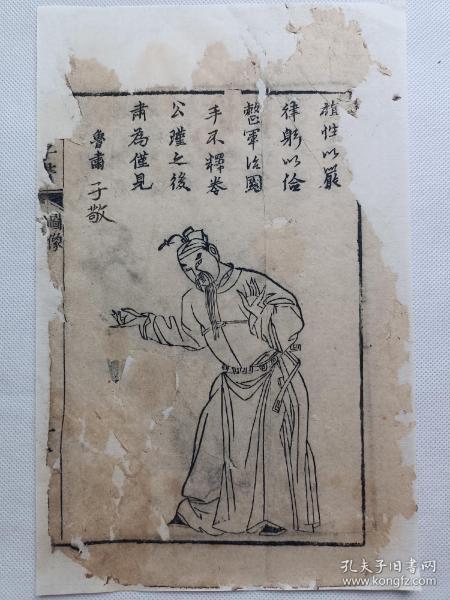 性以嚴
律躬以儉
整軍治國
手不釋卷
公瑾之後
肅為僅見
魯肅 子敬
圖像
孔夫子旧书网
www.kongfz.com